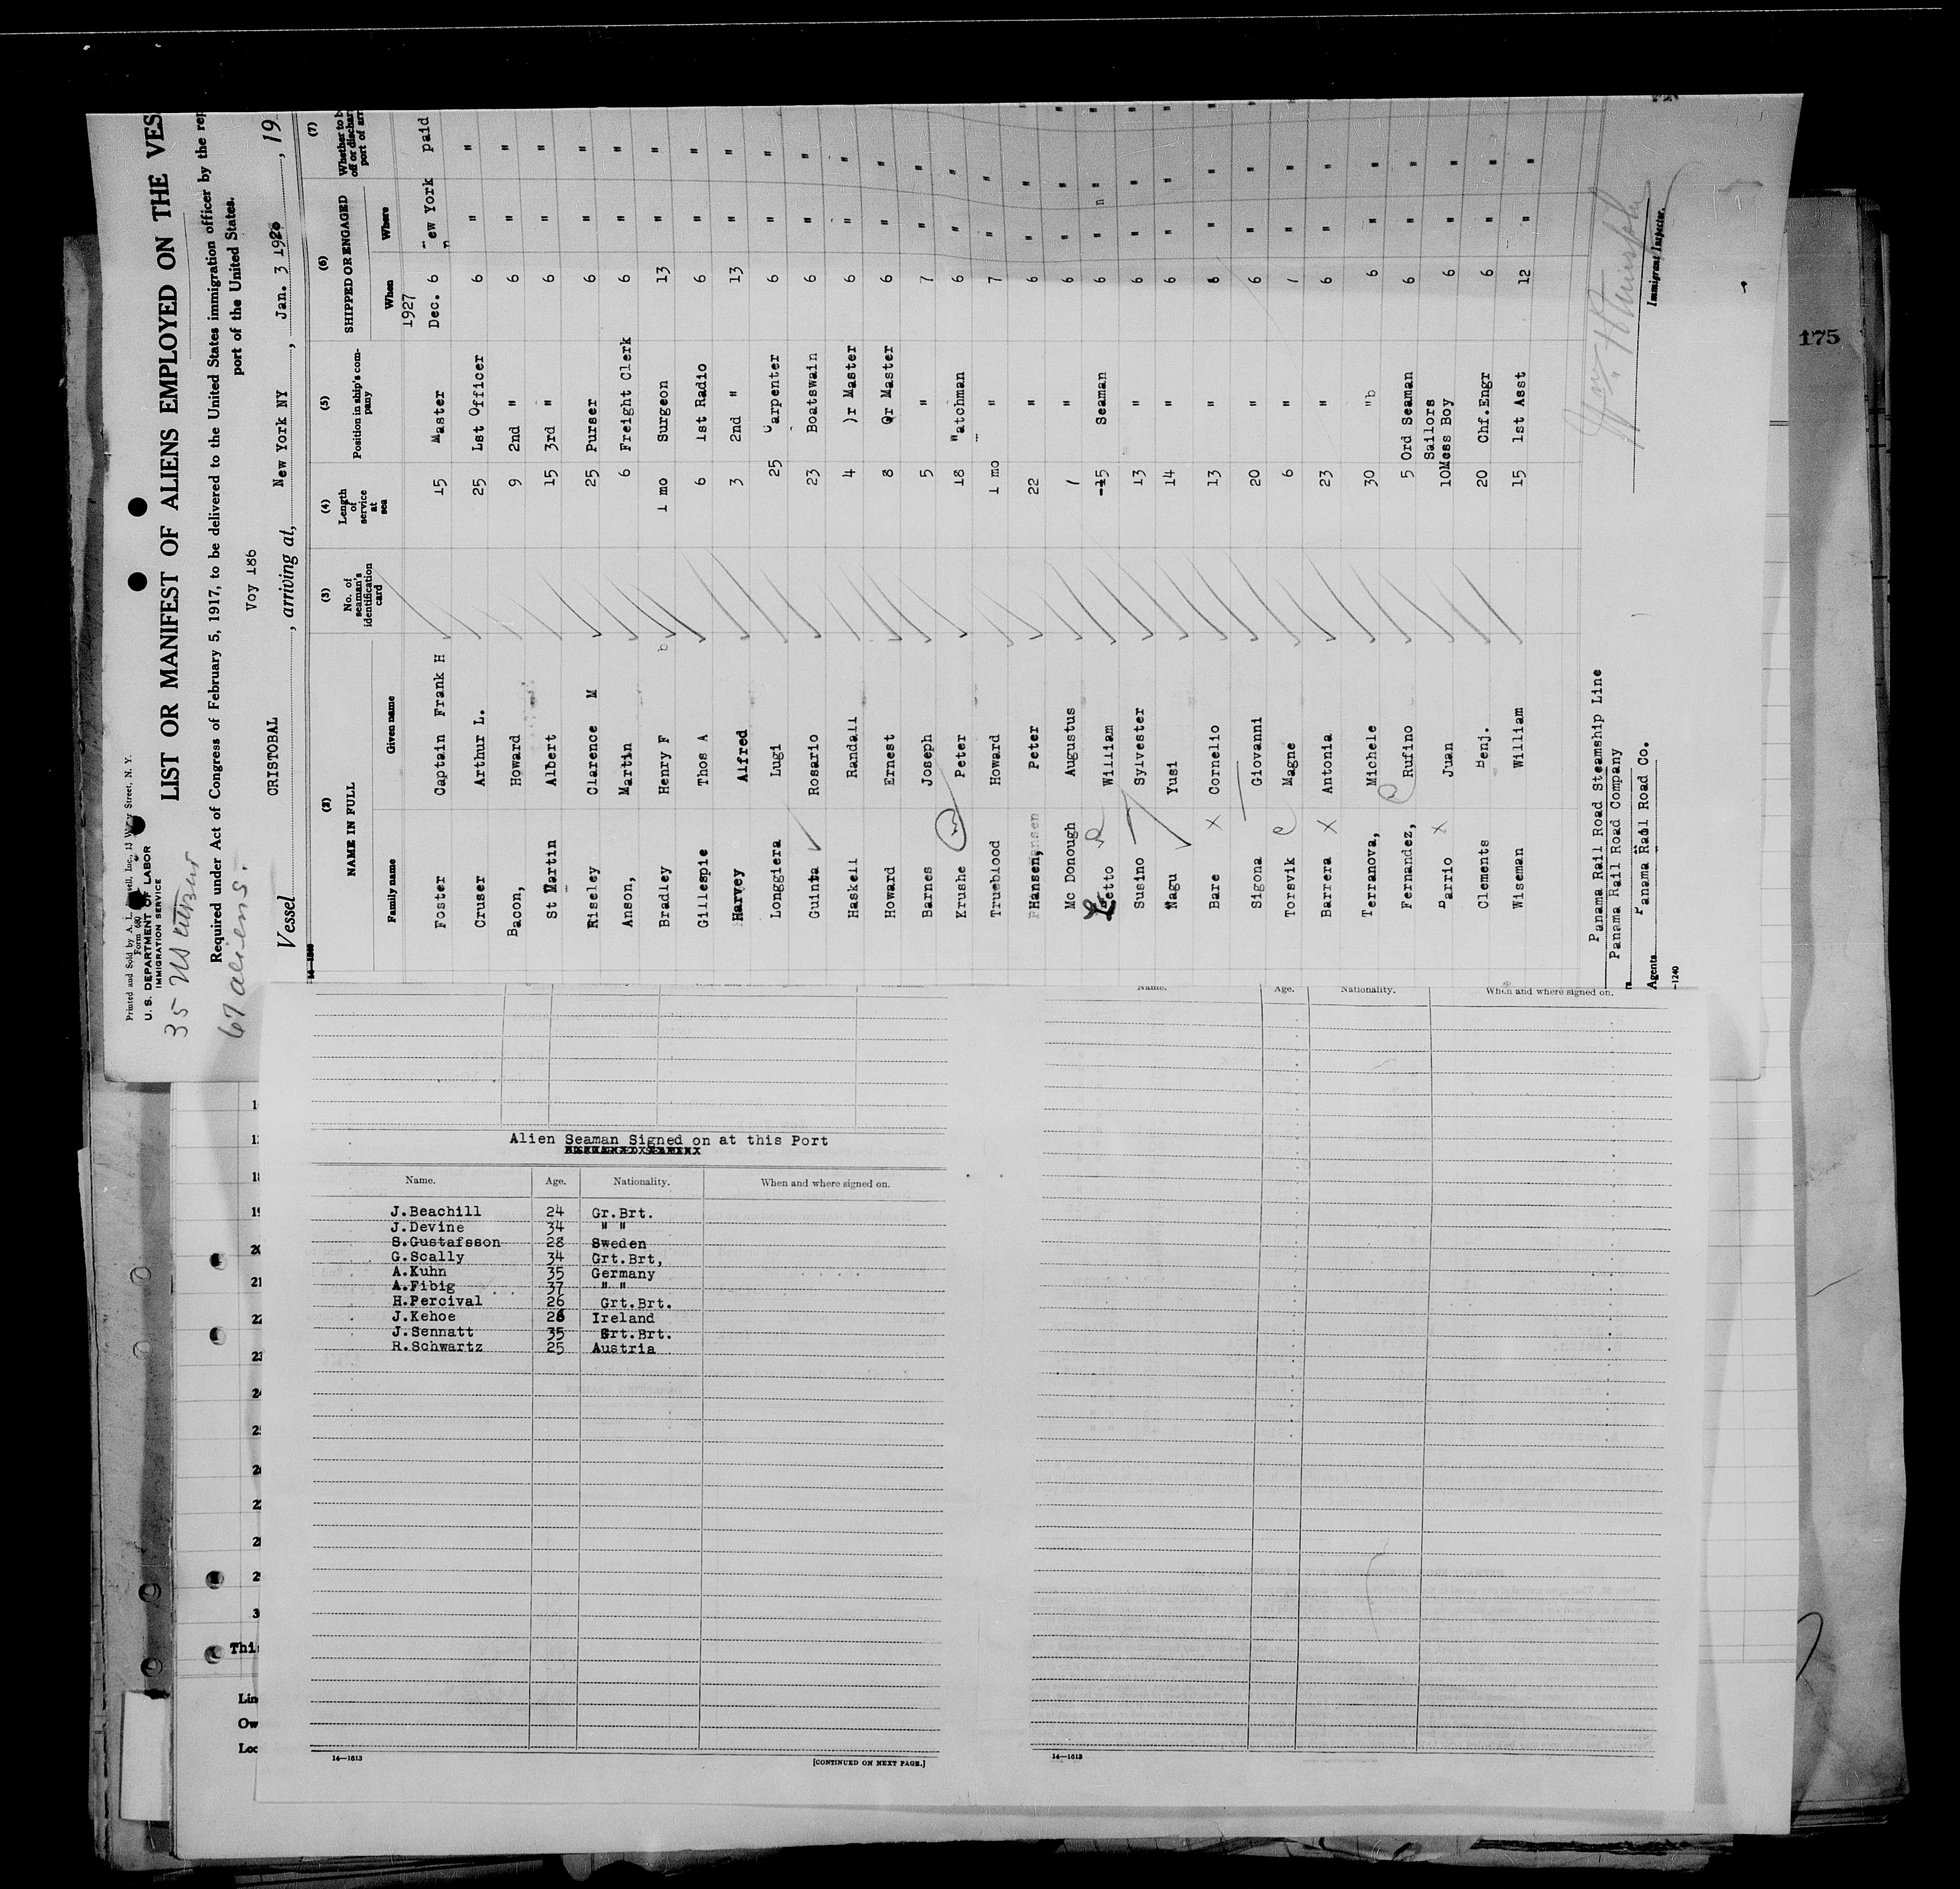 Printed and Sold by A. L. Inc., Street, N. Y.
Form 680
U. S. DEPARTMENT OF LABOR
IMMIGRATION SERVICE
35
67 aliens.
LIST OR MANIFEST OF ALIENS EMPLOYED ON THE VES
Required under Act of Congress of February 5, 1917, to be delivered to the United States immigration officer by the rep
port of the United States.
Voy 186
Vessel CRISTOBAL , arriving at, New York NY , Jan. 3 19 , 19
(2) (3) (4) (5) (6) (7)
NAME IN FULL No. of seaman's identification card Length of service at sea Position in ship's company SHIPPED OR ENGAGED Whether to b off or dischar port of arr
Family name Given name When Where
1927
Foster Captain Frank H 15 Master Dec. 6 ew York paid
Cruser Arthur L. 25 1st Officer 6 " "
Bacon, Howard 9 2nd " 6 " "
St Martin Albert 15 3rd " 6 " "
Riseley Clarence M 25 Purser 6 " "
Anson, Martin 6 Freight Clerk 6 " "
Bradley Henry F 1 mo Surgeon 13 " "
Gillespie Thos A 6 1st Radio 6 " "
Harvey Alfred 3 2nd " 13 " "
Longgiera Lugi 25 Carpenter 6 " "
Guinta Rosario 23 Boatswain 6 " "
Haskell Randall 4 r Master 6 " "
Howard Ernest 8 Qr Master 6 " "
Barnes Joseph 5 " 7 " "
Krushe Peter 18 Watchman 6 " "
Trueblood Howard 1 mo " 7 " "
Hansen, Peter 22 " 6 " "
Mc Donough Augustus 7 " 6 " "
etto William 15 Seaman 6 " "
Susino Sylvester 13 " 6 " "
Nagu Yusi 14 " 6 " "
Bare X Cornelio 13 " 6 " "
Sigona Giovanni 20 " 6 " "
Torsvik Magne 6 " 7 " "
Barrera X Antonia 23 " 6 " "
Terranova, Michele 30 " 6 " "
Fernandez, Rufino 5 Ord Seaman 6 " "
Barrio X Juan 10 Sailors Mess Boy 6 " "
Clements Benj. 20 Chf.Engr 6 " "
Wiseman William 15 1st Asst 12 " "
Panama Rail Road Steamship Line
Panama Rail Road Company
Agents Panama Rail Road Co.
Immigrant Inspector.
14-1240
175
Name. Age. Nationality. When and where signed on.
Alien Seaman Signed on at this Port
Name. Age. Nationality. When and where signed on.
J.Beachill 24 Gr.Brt.
J.Devine 34 " "
S.Gustafsson 28 Sweden
G.Scally 34 Grt.Brt,
A.Kuhn 35 Germany
A.Fibig 37 " "
H.Percival 26 Grt.Brt.
J.Kehoe 28 Ireland
J.Sennatt 35 Grt.Brt.
R.Schwartz 25 Austria
14—1613 [CONTINUED ON NEXT PAGE.]
14—1613
18
20
21
22
23
24
This
Lin
Ow
Loc